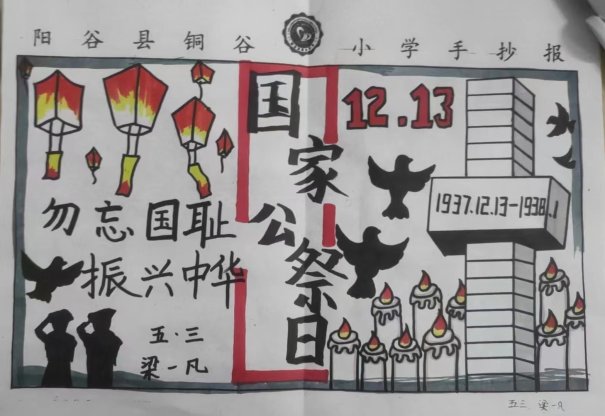 阳谷县铜谷小学手抄报
国家公祭日
12.13
1937.12.13-1938.1
勿忘国耻
振兴中华
五.三
梁一凡
五三 梁一凡